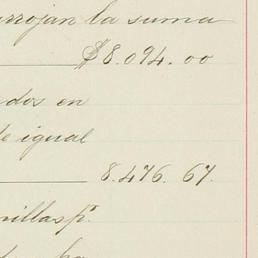 arrojan la suma
$8.094.00
ados en
de igual
8.476.67.
nillas pr